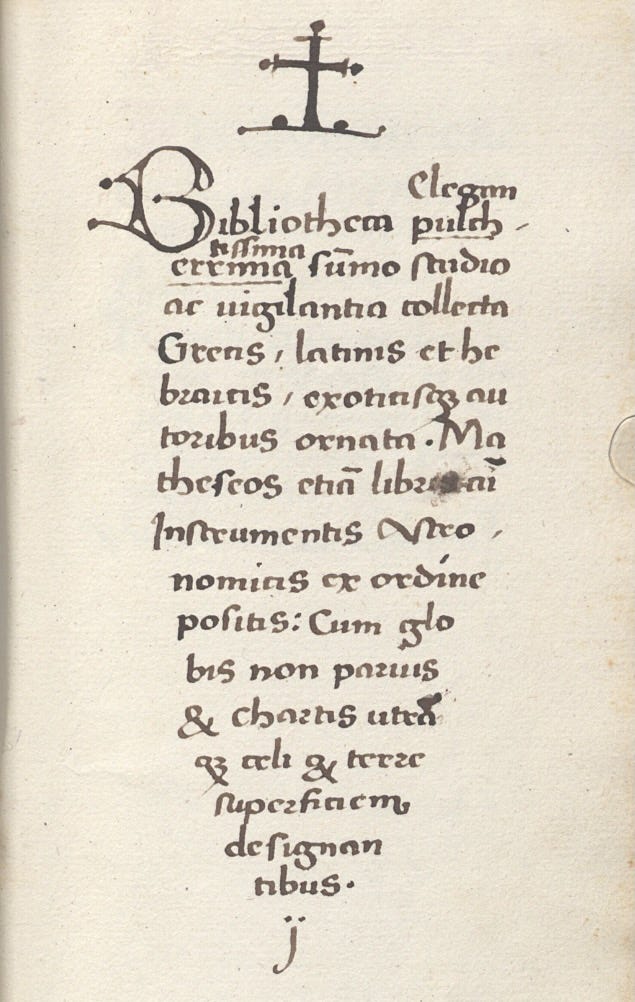 Elegan
Bibliotheca pulch
tissima
errima sūmo studio
ac uigilantia collecta
Grecis, latinis et he
braicis, exoticisqꝫ au
toribus ornata. Ma
theseos etiā libris
Instrumentis Astro
nomicis ex ordine
positis: Cum glo
bis non paruis
& chartis utrā
qꝫ celi & terre
superficiem,
designan
tibus.
j